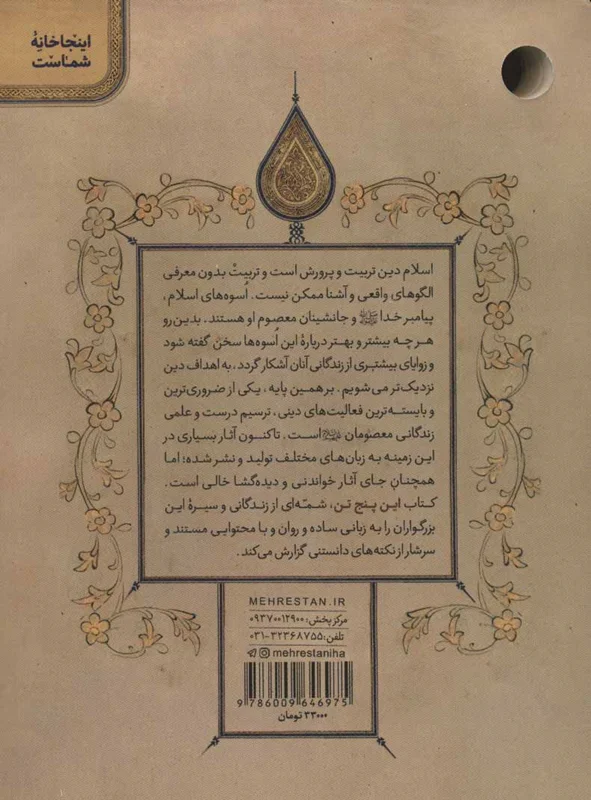 اینجا خانهٔ
شماست
اسلام دین تربیت و پرورش است و تربیتْ بدون معرفی
الگوهای واقعی و آشنا ممکن نیست. اُسوه‌های اسلام،
پیامبر خدا ﷺ و جانشینان معصوم او هستند. بدین‌رو
هر چه بیشتر و بهتر دربارهٔ این اُسوه‌ها سخن گفته شود
و زوایای بیشتری از زندگانی آنان آشکار گردد، به اهداف دین
نزدیک‌تر می‌شویم. بر همین پایه، یکی از ضروری‌ترین
و بایسته‌ترین فعالیت‌های دینی، ترسیم درست و علمی
زندگانی معصومان است. تاکنون آثار بسیاری در
این زمینه به زبان‌های مختلف تولید و نشر شده؛ اما
همچنان جای آثار خواندنی و دیده‌گشا خالی است.
کتاب این پنج تن، شمّه‌ای از زندگانی و سیرهٔ این
بزرگواران را به زبانی ساده و روان و با محتوایی مستند و
سرشار از نکته‌های دانستنی گزارش می‌کند.
MEHRESTAN.IR
مرکز پخش: ۰۹۳۷۰۰۱۲۹۰۰
تلفن: ۰۳۱-۳۲۳۶۸۷۵۵
mehrestaniha
9 786009 646975
۳۳۰۰۰ تومان